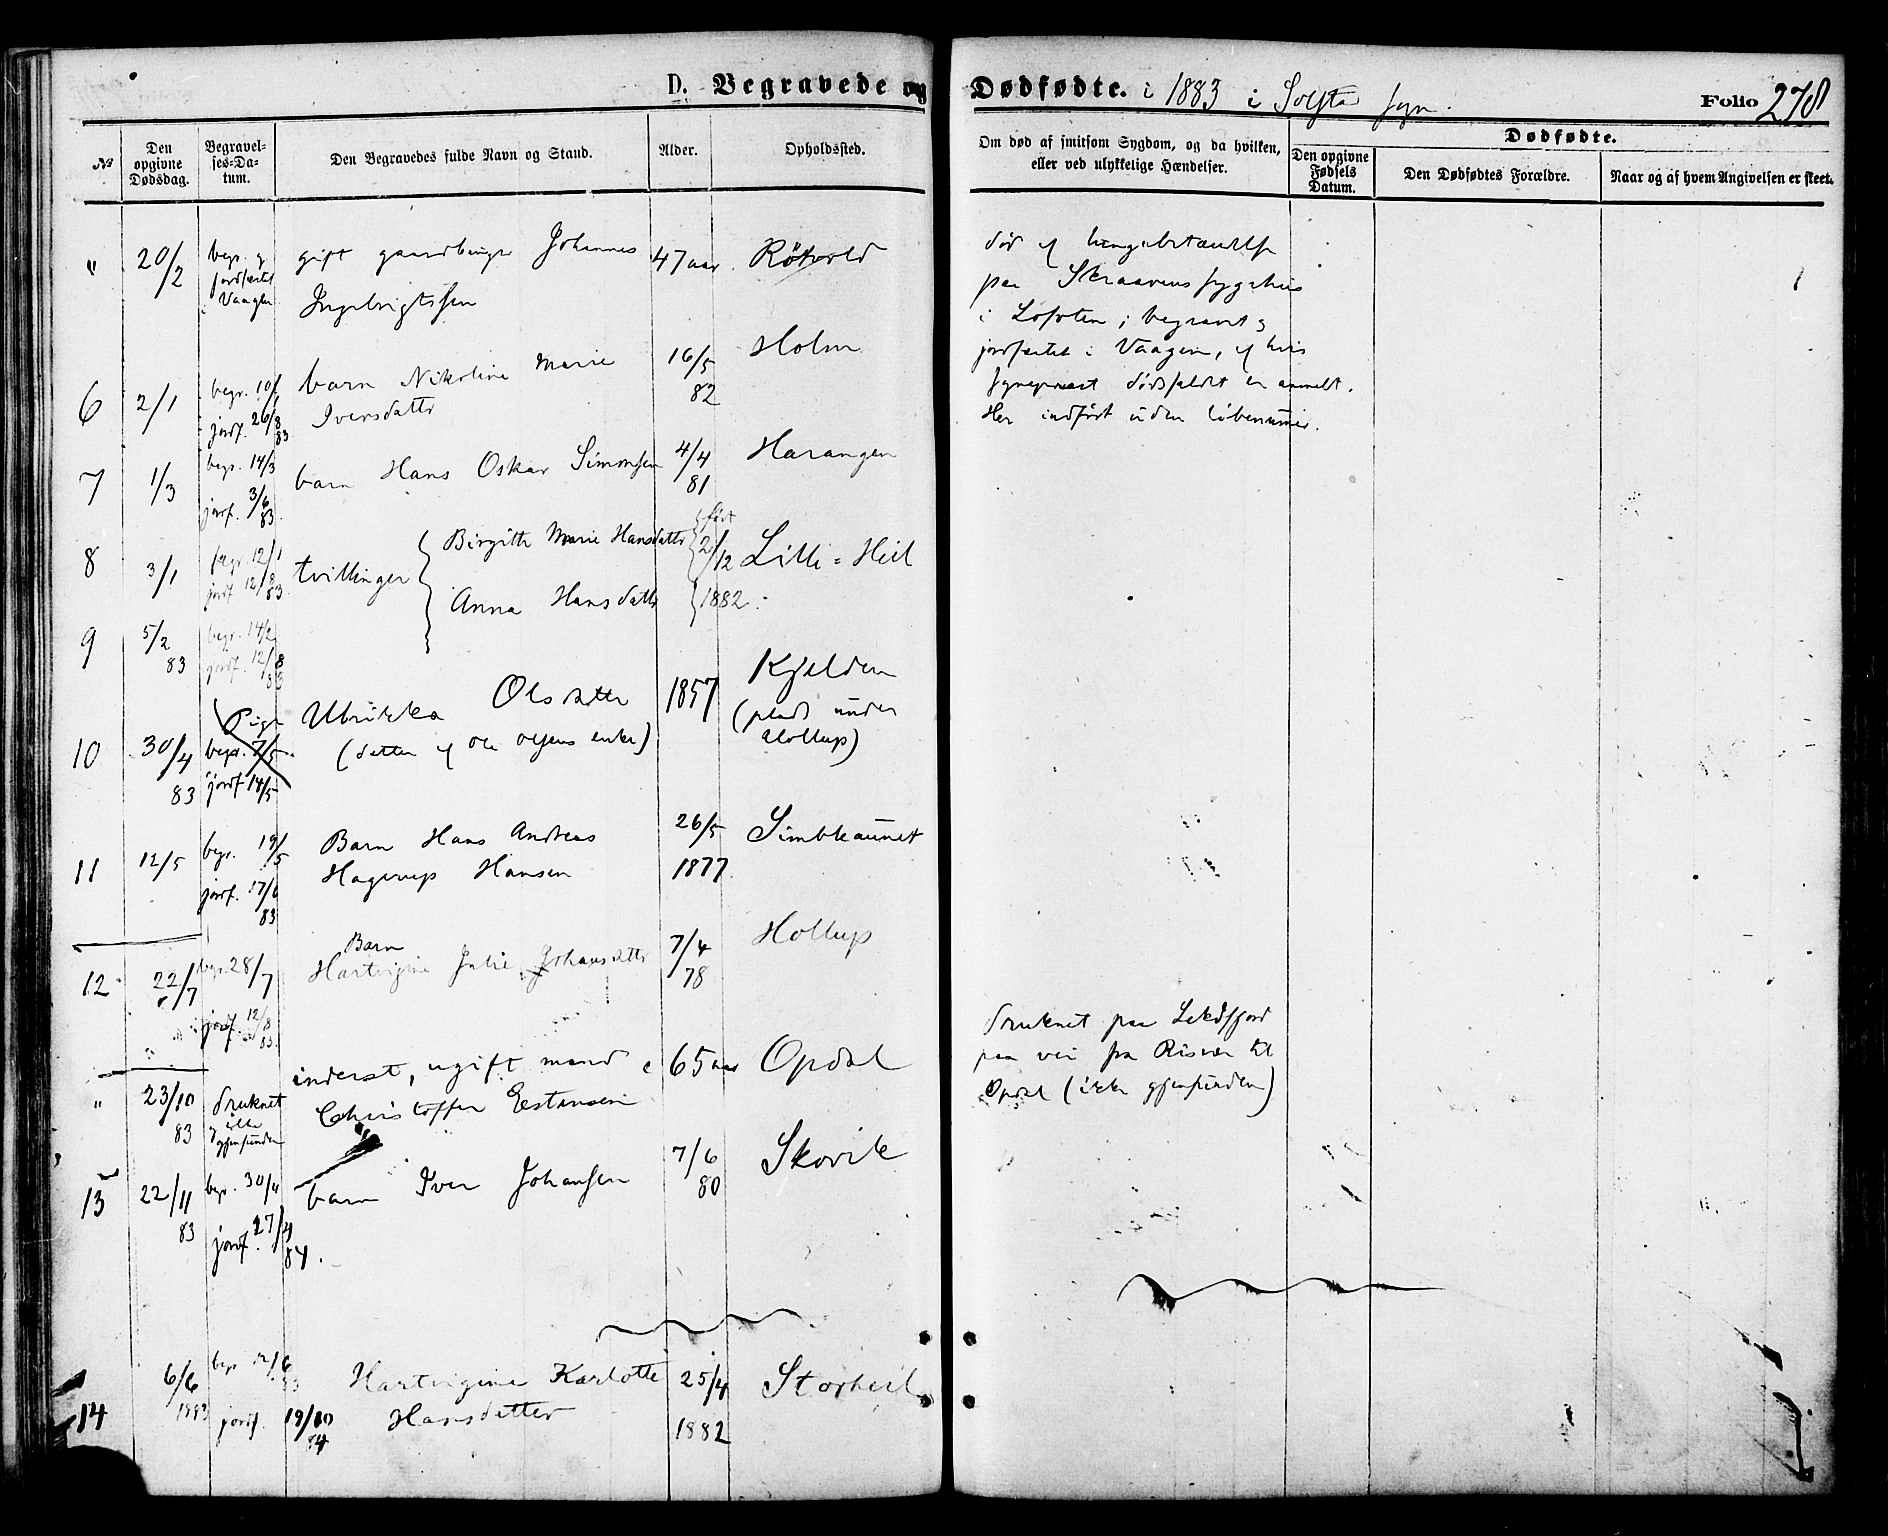 D. Begravede og Dødfødte. i 1883 i Solstad sogn.
Folio 278
No
Den opgivne Dødsdag.
Begravel-
ses-Da-
tum.
Den Begravedes fulde Navn og Stand.
Alder.
Opholdssted.
Om død af smitsom Sygdom, og da hvilken,
eller ved ulykkelige Hændelser.
Dødfødte.
Den opgivne
Fødsels
Datum.
Den Dødfødtes Forældre.
Naar og af hvem Angivelsen er skeet.
" 20/2 begr. og gift Johannes 47 aar
jordfæstet
i Vaagen Ingebrigtssen
død af
paa Skraavens sygehus
i Lofoten; begravet og
jordfæstet i Vaagen, af hvis
sognepræst dødsfaldet er anmeldt.
Her indført uden løbenummer.
6 2/1 begr. 10/1 barn Nikoline Marie 16/5 Holm
jordf. 26/8 83 Iversdattr 82
7 1/3 begr. 14/3 barn Hans Oskar Simonsen 4/4 Harangen
jordf. 3/6 83. 81
8 3/1 begr. 12/1 tvillinger Birgitte Marie Hansdattr født 2/12 Lille-Heil
jordf. 12/8 83 Anna Hansdattr 1882.
9 5/2 begr. 14/2
83 jordf. 12/8 83
10 30/4 Pige Ulrikka Olsdattr 1857 Kjelden
begr. 7/5 (datter af Ole Olsens enke) (plads under
83 jordf 14/5 Hollup)
11 12/5 begr. 19/5 Barn Hans Andreas 26/5
jordf. 17/6 Hagerup Hansen 1877
83
12 22/7 begr. 28/7 Barn 7/4 Hollup
Hartvigine Julie Johansdattr 78
jordf. 12/8 83.
" 23/10 druknet inderst, ugift mand 65 aar Opdal
83 gjenfunden Christoffer Estensen
druknet paa
paa vei fra Risvær til
Opdal (ikke gjenfunden)
13 22/11 begr. 30/4 barn Iver Johansen 7/6 Skovik
83 jordf. 27/4 84. 80
14 6/6 begr. 12/6 Hartvigine Karlotte 25/4 Storheil
1883 jordf. 19/10 84 Hansdatter 1882